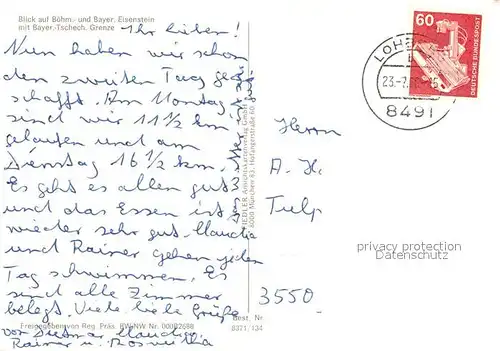 Blick auf Böhm.- und Bayer. Eisenstein
mit Bayer.-Tschech. Grenze
Ihr lieben!
Nun haben wir schon
den zweiten Tag ge
schafft. Am Montag
sind wir 11 1/2 km
gelaufen und am
Dienstag 16 1/2 km.
Es geht es allen gut
und das Essen ist
wieder sehr gut. Claudia
und Rainer gehen jeden
Tag schwimmen. Es
sind alle Zimmer
belegt. Viele liebe Grüße
von Dietmar Claudia
Rainer u. Roswitha
Freigegeben von Reg. Präs.
Best. Nr.
8371/134
8000 München 83
60
DEUTSCHE BUNDESPOST
23.-7.
8491
Herrn
A. H.
Tulp
3550
privacy protection
Datenschutz